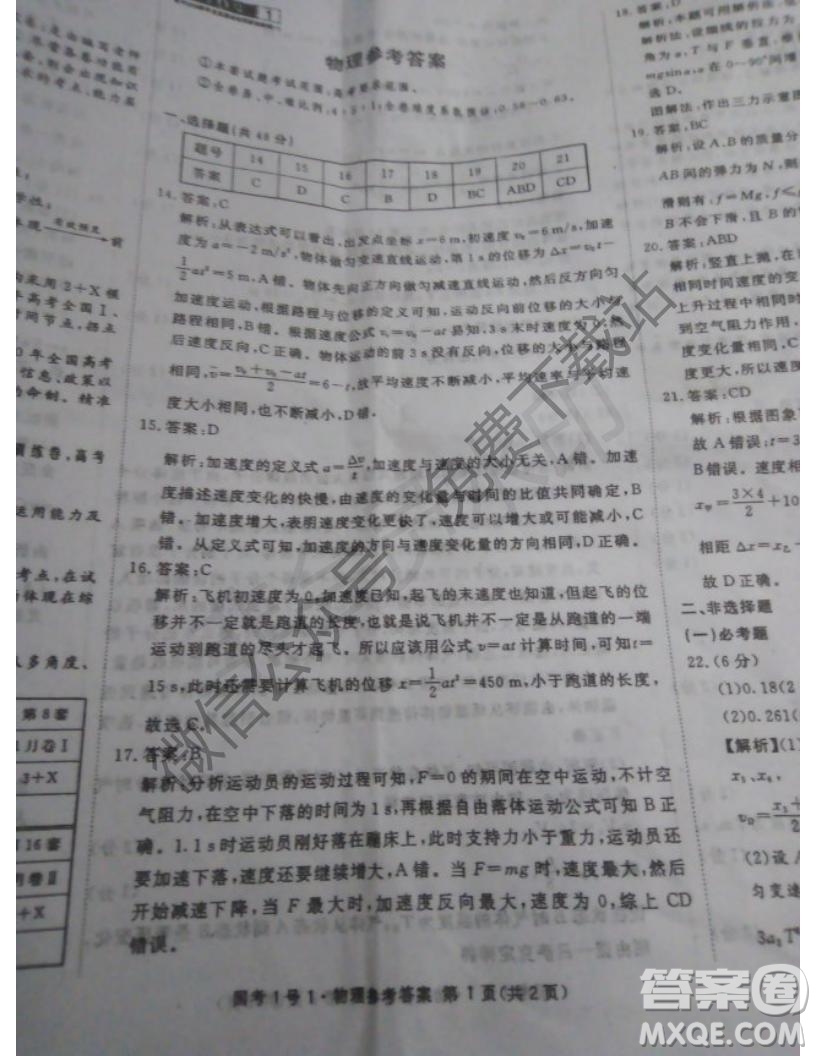 物理参考答案
①本套试题考试范围:高考要求范围。
②全卷易、中、难比例:4:5:1;全卷难度系数预估:0.58-0.63。
一、选择题(共48分)
题号 14 15 16 17 18 19 20 21
答案 C D C B D BC ABD CD
14. 答案:C
解析:从表达式可以看出,出发点坐标x=6m,初速度v₀=6m/s,加速
度为a=-2m/s²,物体做匀变速直线运动,第1s的位移为Δx=v₀t-
1/2at²=5m,A错。物体先向正方向做匀减速直线运动,然后反方向匀
加速度运动,根据路程与位移的定义可知,运动反向前位移的大小与
路程相同,B错。根据速度公式v=v₀-at易知,3s末时速度为0,然
后速度反向,C正确。物体运动的前3s没有反向,位移的大小与路程
相同,v̄=(v₀+v₀-at)/2=6-t,故平均速度不断减小,平均速率与平均速
度大小相同,也不断减小,D错。
15. 答案:D
解析:加速度的定义式a=Δv/t,加速度与速度的大小无关,A错。加速
度描述速度变化的快慢,由速度的变化量与时间的比值共同确定,B
错。加速度增大,表明速度变化更快了,速度可能增大或可能减小,C
错。从定义式可知,加速度的方向与速度变化量的方向相同,D正确。
16. 答案:C
解析:飞机初速度为0,加速度已知,起飞的末速度也知道,但起飞的位
移并不一定就是跑道的长度,也就是说飞机并不一定是从跑道的一端
运动到跑道的尽头才起飞。所以应该用公式v=at计算时间,可知t=
15s,此时还需要计算飞机的位移x=1/2at²=450m,小于跑道的长度,
故选C。
17. 答案:B
解析:分析运动员的运动过程可知,F=0的期间在空中运动,不计空
气阻力,在空中下落的时间为1s,再根据自由落体运动公式可知B正
确。1.1s时运动员刚好落在蹦床上,此时支持力小于重力,运动员还
要加速下落,速度还要继续增大,A错。当F=mg时,速度最大,然后
开始减速下降,当F最大时,加速度反向最大,速度为0,综上CD
错误。
国考1号1·物理参考答案 第1页(共2页)
18. 答案:D
解析:本题可用图解
解析:设细线的拉力为
角为α,T与F垂直,
mgsinα,α在0~90°间增
选D。
图解法:作出三力示意图
19. 答案:BC
解析:设A、B的质量分
AB间的弹力为N,则
滑则有:f=Mg,f≤
B不会下滑,且为
20. 答案:ABD
解析:竖直上抛,在
相同时间速度的变
上升过程中相同
到空气阻力作用,
度变化量大小相
度更大,所以速度
21. 答案:CD
解析:根据图象
故A错误;t=3
B错误。速度相
x甲=3×4/2+10
相距 Δx=x乙-
故D正确。
二、非选择题
(一)必考题
22.(6分)
(1)0.18(2
(2)0.261(
【解析】(1)
x₃、x₄,
vD=x₃+/2
(2)设A
匀变速
3a₁T
由编写老师
前
采用2+X模
年高考全国Ⅰ、
时间节点,拐点
0年全国高考
信息,政策以
的命制。精准
练卷,高考
运用能力及
考点,在试
体现在综
多角度、
第8套
1月卷Ⅰ
3+X
16套
卷Ⅱ
+X
微信公众号 免费下载站
答案圈
MXQE.COM